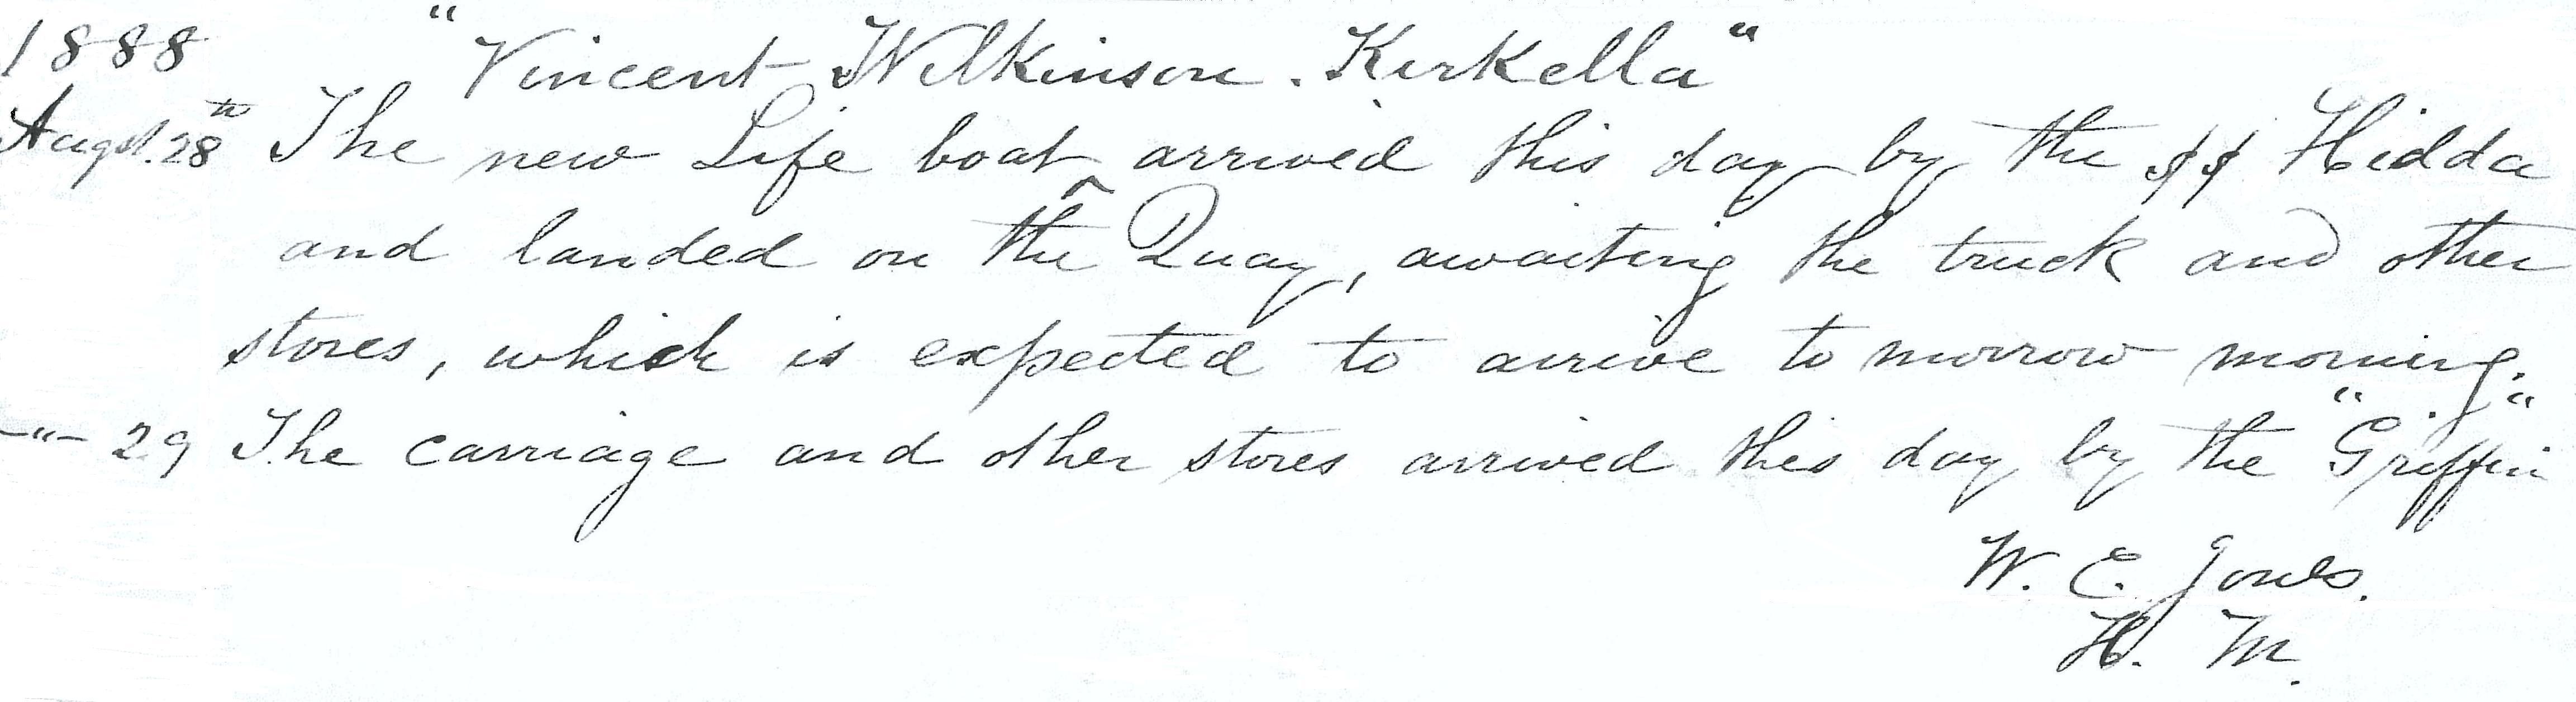 1888 "Vincent Wilkinson. Kirkella"
Augst. 28th The new Life boat arrived this day by the SS Hidda
and landed on the Quay, awaiting the truck and other
stores, which is expected to arrive to morrow morning.
-"- 29 The carriage and other stores arrived this day by the "Griffin"
W. E. Jones.
H. M.